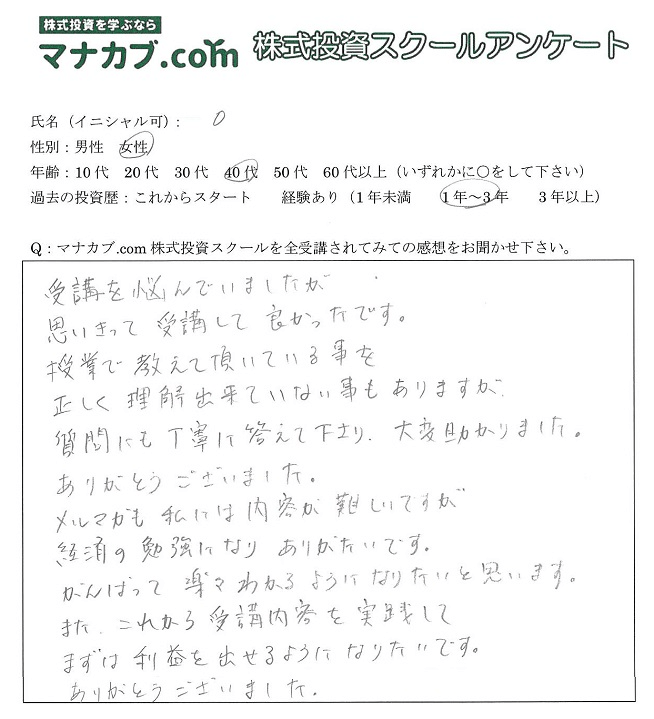 株式投資を学ぶなら
マナカブ.com 株式投資スクールアンケート
氏名（イニシャル可）： O
性別：男性 女性
年齢：10代 20代 30代 40代 50代 60代以上（いずれかに○をして下さい）
過去の投資歴：これからスタート 経験あり（1年未満 1年～3年 3年以上）
Q：マナカブ.com 株式投資スクールを全受講されてみての感想をお聞かせ下さい。
受講を悩んでいましたが
思いきって受講して良かったです。
授業で教えて頂いている事を
正しく理解出来ていない事もありますが、
質問にも丁寧に答えて下さり、大変助かりました。
ありがとうございました。
メルマガも私には内容が難しいですが
経済の勉強になりありがたいです。
がんばって楽々わかるようになりたいと思います。
また、これから受講内容を実践して
まずは利益を出せるようになりたいです。
ありがとうございました。